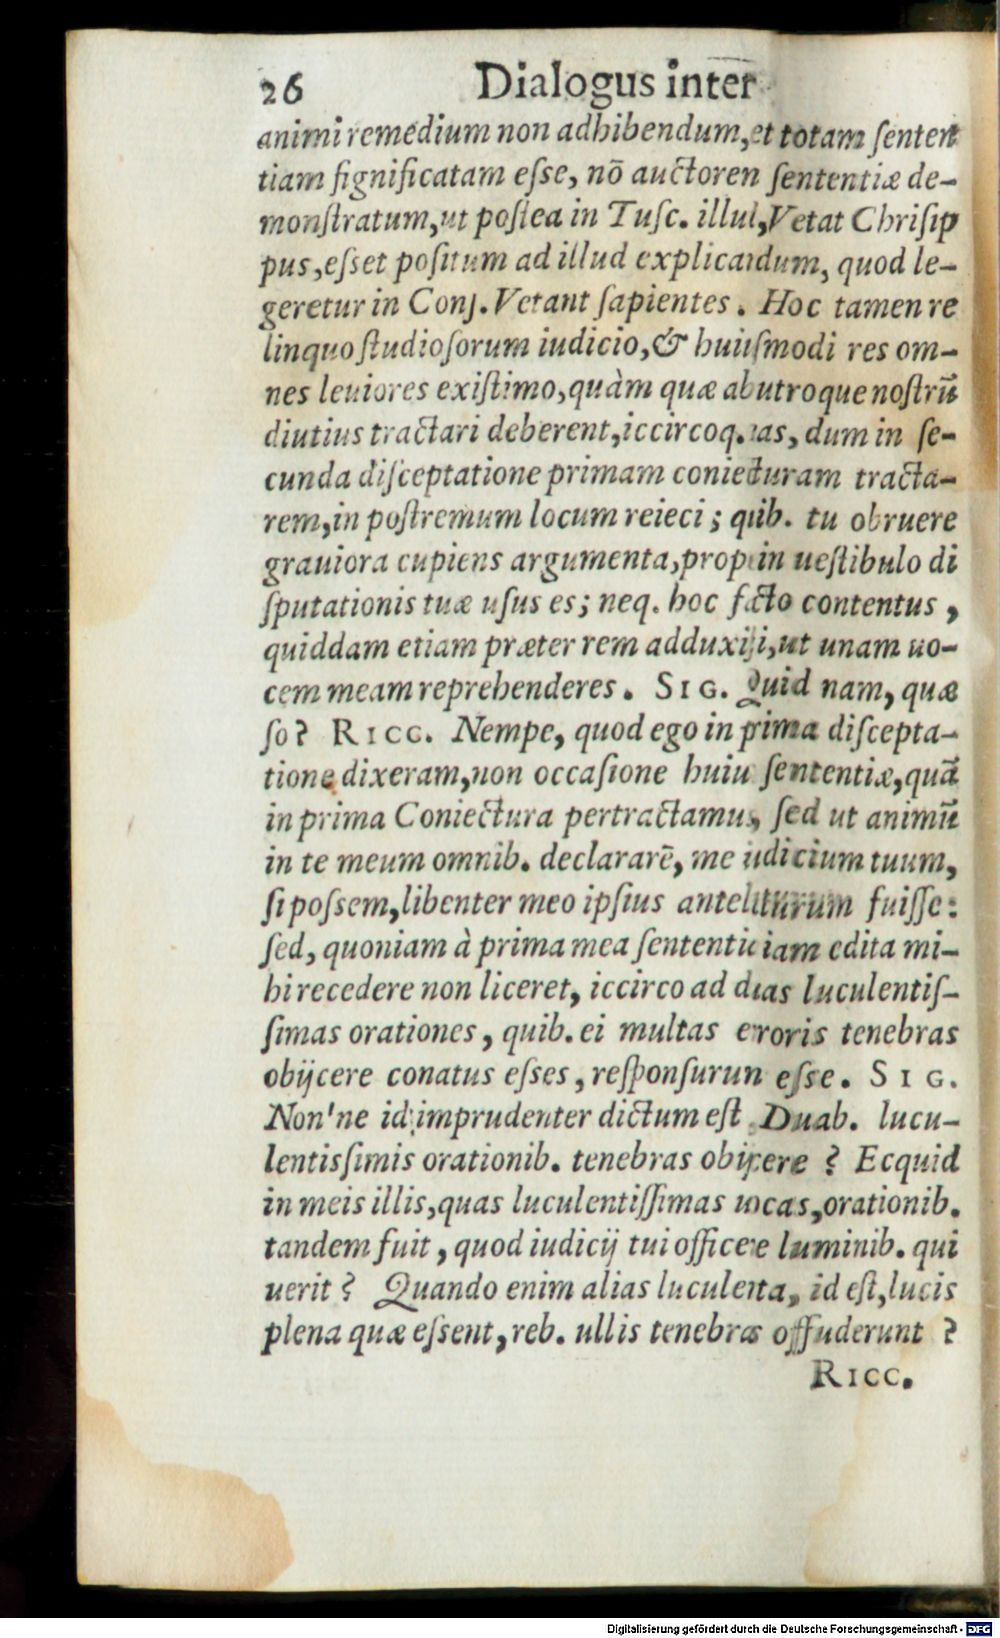 26 Dialogus inter
animi remedium non adhibendum, et totam ſenten
tiam ſignificatam eſse, nō auctoren ſententiæ de-
monſtratum, ut poſtea in Tuſc. illul, Vetat Chriſip
pus, eſset poſitum ad illud explicandum, quod le-
geretur in Conſ. Vetant ſapientes. Hoc tamen re
linquo ſtudioſorum iudicio, & huiuſmodi res om-
nes leuiores exiſtimo, quàm quæ ab utroque noſtrū
diutius tractari deberent, iccircoq. as, dum in ſe-
cunda diſceptatione primam coniecturam tracta-
rem, in poſtremum locum reieci; quib. tu obruere
grauiora cupiens argumenta, prop in ueſtibulo di
ſputationis tuæ uſus es; neq. hoc facto contentus,
quiddam etiam præter rem adduxiſti, ut unam uo-
cem meam reprehenderes. SIG. Quid nam, quæ
ſo? RICC. Nempe, quod ego in prima diſcepta-
tione dixeram, non occaſione huiu ſententiæ, quā
in prima Coniectura pertractamus, ſed ut animū
in te meum omnib. declararē, me iudicium tuum,
ſi poſsem, libenter meo ipſius antelaturum fuiſſe:
ſed, quoniam à prima mea ſententia iam edita mi-
hi recedere non liceret, iccirco ad duas luculentiſ-
ſimas orationes, quib. ei multas erroris tenebras
obijcere conatus eſses, reſponſurun eſse. SIG.
Non'ne id imprudenter dictum eſt Duab. lucu-
lentisſimis orationib. tenebras obijcere? Ecquid
in meis illis, quas luculentiſſimas uocas, orationib.
tandem fuit, quod iudicij tui officere luminib. qui
uerit? Quando enim alias luculenta, id eſt, lucis
plena quæ eſsent, reb. ullis tenebras offuderunt?
RICC.
Digitalisierung gefördert durch die Deutsche Forschungsgemeinschaft - DFG